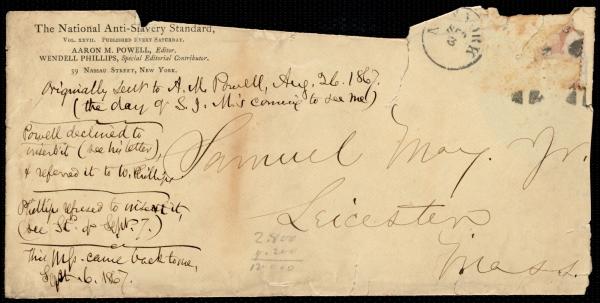 The National Anti-Slavery Standard,
Vol. XXVII. Published Every Saturday.
AARON M. POWELL, Editor.
WENDELL PHILLIPS, Special Editorial Contributor.
39 Nassau Street, New York.
Originally sent to A. M. Powell, Aug. 26. 1867.
(the day of S. J. M's coming to see me)
Powell declined to
insert it (see his letter),
& referred it to W. Phillips
Phillips refused to insert it,
(see St'd. of Sept. 7.)
This Mss. came back to me,
Sept. 6. 1867.
Samuel May, Jr.
Leicester
Mass.
2.800
9.200
12.000
YORK